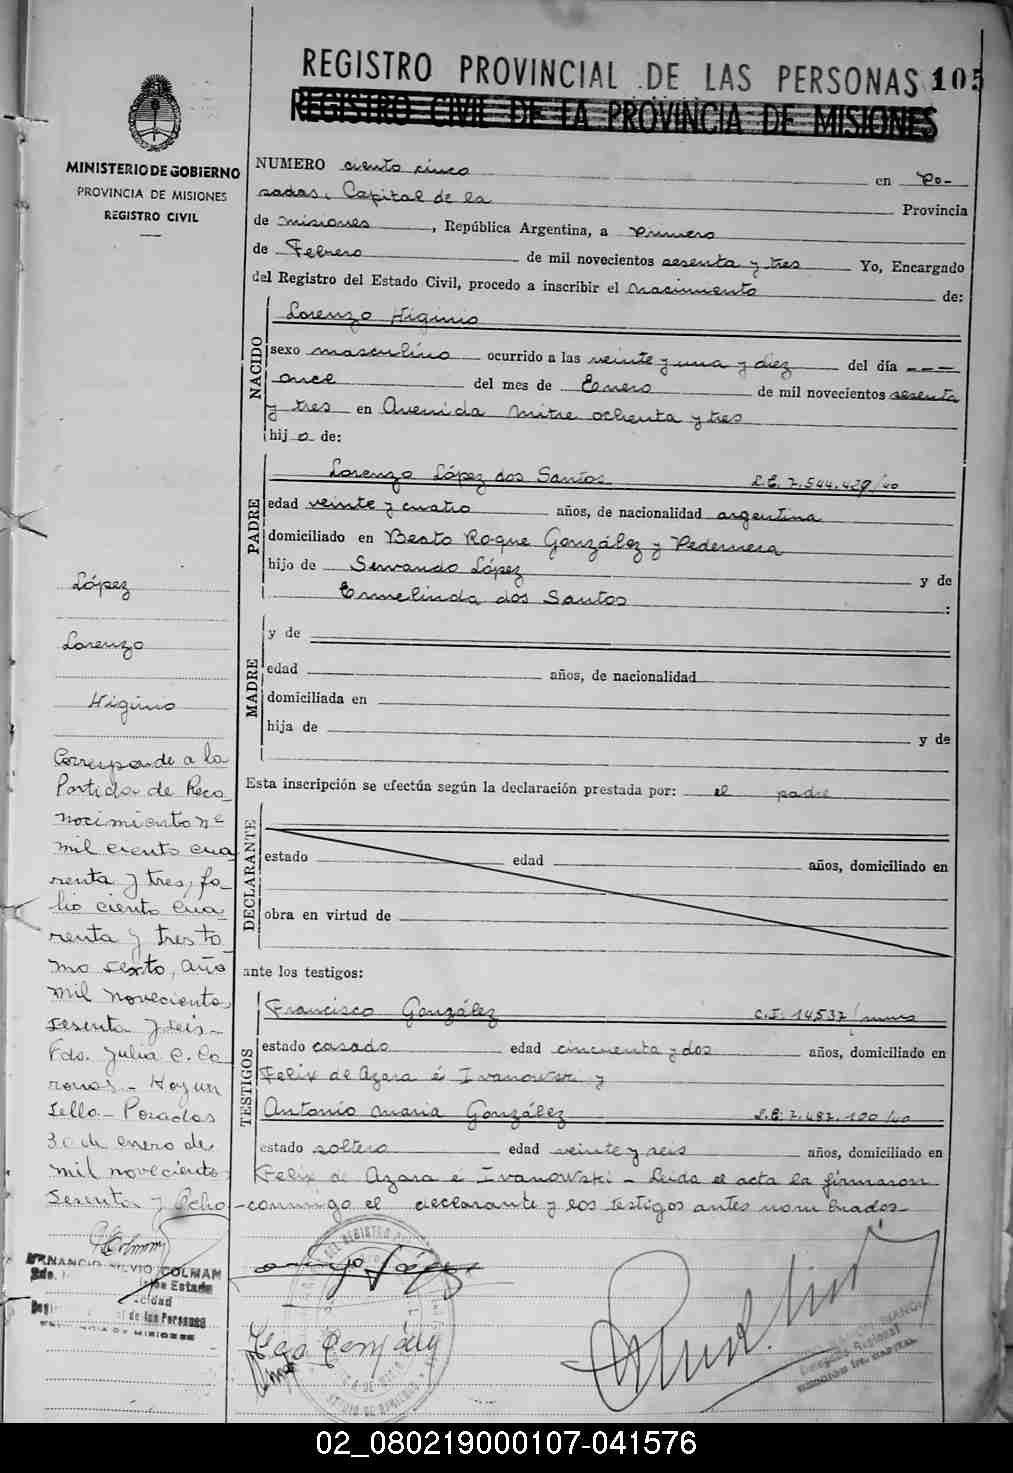 REGISTRO PROVINCIAL DE LAS PERSONAS 105
REGISTRO CIVIL DE LA PROVINCIA DE MISIONES
MINISTERIO DE GOBIERNO
PROVINCIA DE MISIONES
REGISTRO CIVIL
NUMERO ciento cinco en Po-
sadas, Capital de la Provincia
de misiones, República Argentina, a Primero
de Febrero de mil novecientos sesenta y tres Yo, Encargado
del Registro del Estado Civil, procedo a inscribir el nacimiento de:
NACIDO
Lorenzo Higinio
sexo masculino ocurrido a las veinte y una y diez del día ---
once del mes de Enero de mil novecientos sesenta
y tres en Avenida Mitre ochenta y tres
hij o de:
PADRE
Lorenzo López dos Santos L.E. 7.544.439/40
edad veinte y cuatro años, de nacionalidad argentina
domiciliado en Beato Roque González y Pedernera
hijo de Servando López y de
Ermelinda dos Santos :
MADRE
y de
edad años, de nacionalidad
domiciliada en
hija de y de
Esta inscripción se efectúa según la declaración prestada por: el padre
DECLARANTE
estado edad años, domiciliado en
obra en virtud de
ante los testigos:
TESTIGOS
Francisco González C.I. 14.537/
estado casado edad cincuenta y dos años, domiciliado en
Felix de Azara é Ivanowski y
Antonio Maria González L.E. 7.487.100/40
estado soltero edad veinte y seis años, domiciliado en
Felix de Azara e Ivanowski - Leida el acta la firmaron
conmigo el declarante y los testigos antes nombrados-
López
Lorenzo
Higinio
Corresponde a la
Partida de Reco-
nocimiento nº
mil ciento cua
renta y tres, fo-
lio ciento cua
renta y tres to-
mo sexto, año
mil novecientos
sesenta y seis-
Fdo. Julia C. Co
ronas.- Hay un
sello- Posadas
30 de enero de
mil novecientos
sesenta y ocho-
SILVIO COLMAN
de las Personas
02_080219000107-041576